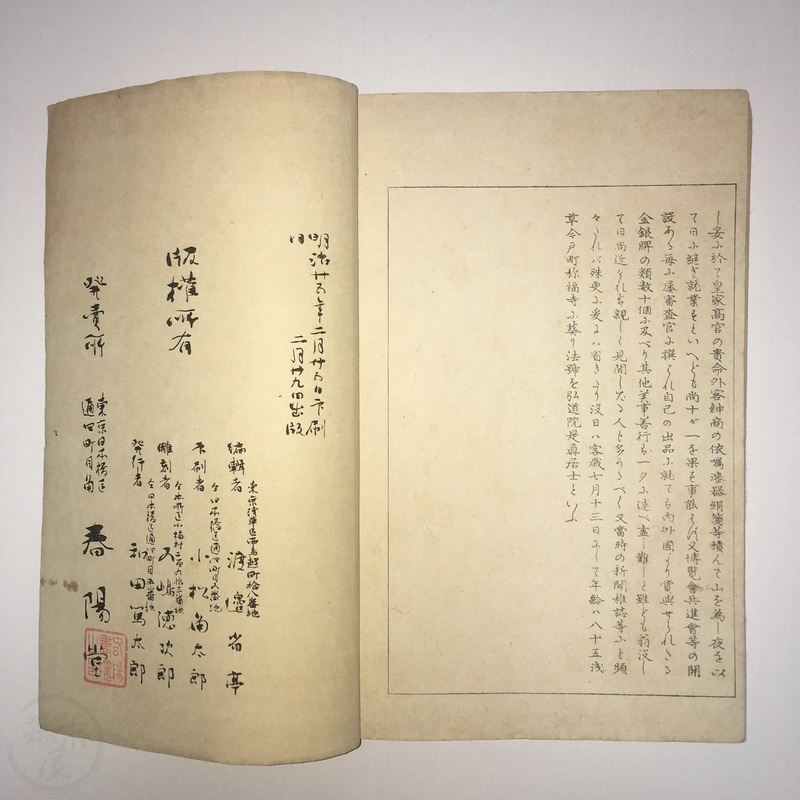 し茲に於て皇家高官の貴命外客紳商の依嘱漆器絹箋等積んで山を為し夜を以
て日に継ぎ就業をといへども尚十が一を果も事能はず又博覧會共進會等の開
設ある毎に屡審査官に撰ばれ自己の出品に就ても内外國より賞與せられたる
金銀牌の類数十個に及べり其他美事善行も一夕に述べ盡し難しと雖ども翁没し
て日尚近ければ親しく見聞したる人も多かるべく又當時の新聞雑誌等にも頻
々たれバ殊更に爰にハ省きたり没日ハ客歳七月十三日にして年齢ハ八十五浅
草今戸町称福寺に葬り法號を弘道院是真居士といふ
明治廿五年二月廿五日印刷
同 二月廿九日出版
版權所有
東京浅草區 町拾八番地
編輯者 渡邊省亭
仝日本橋區通四町目 番地
印刷者 小松角太郎
仝 區小梅村 番地
彫刻者 五嶋徳次郎
仝日本橋區通四町目五番地
発行者 和田篤太郎
発賣所 東京日本橋區通四町目角 春陽堂